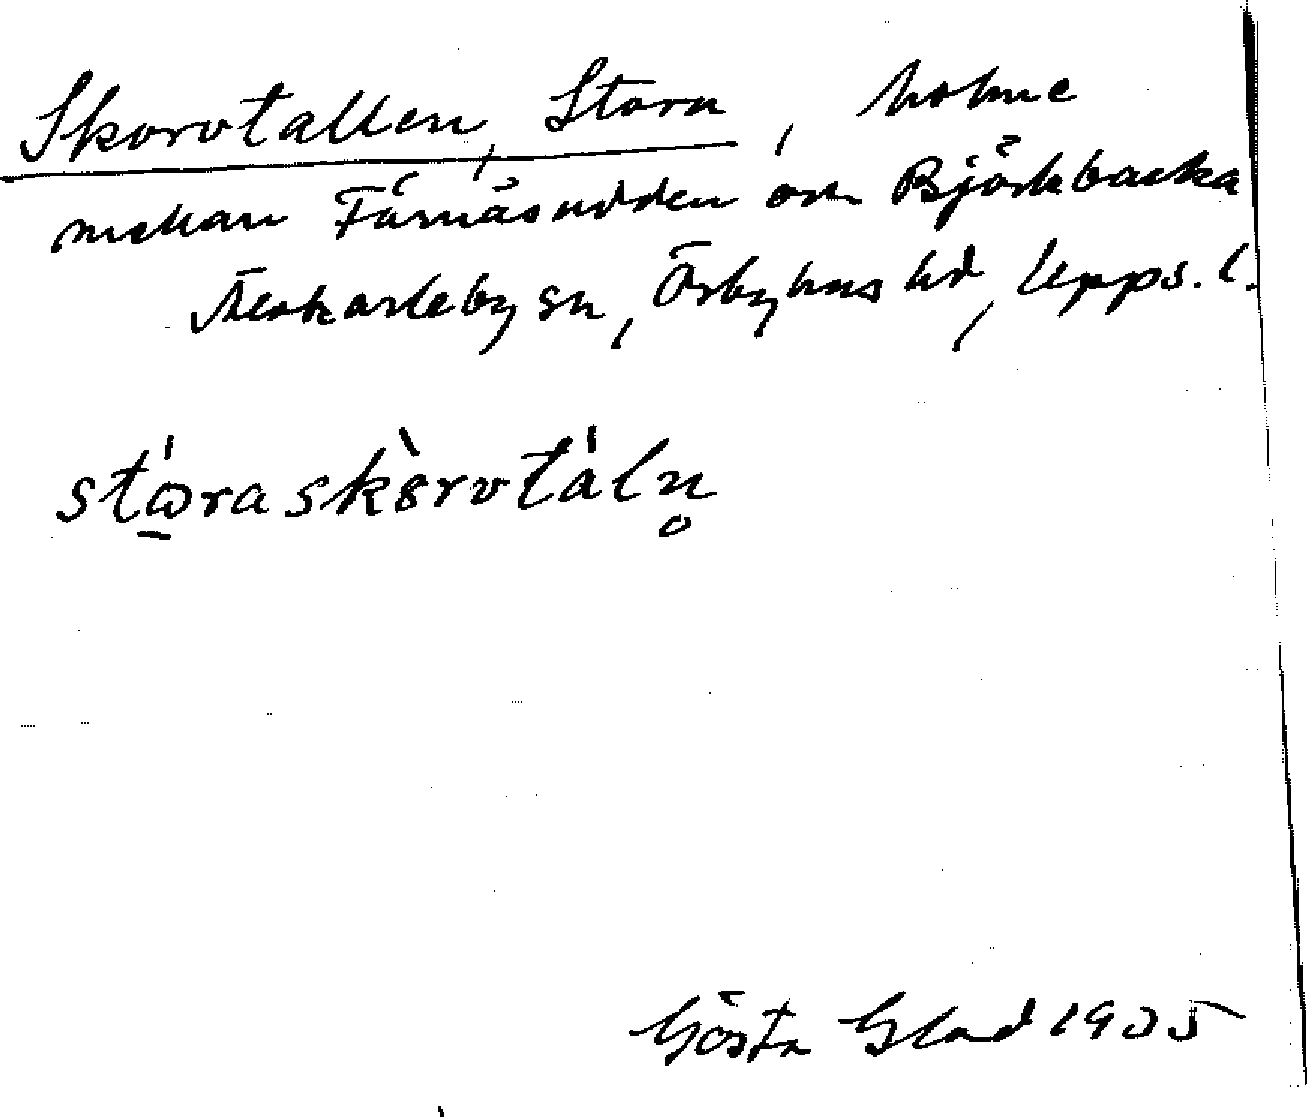 Skorvtallen, Stora, holme
mellan Fårnäsudden och Björkbacka
Älvkarleby sn, Örbyhus hd, Upps. l.
stώ̲raskòrvtáln̥
Gösta Blad 1935